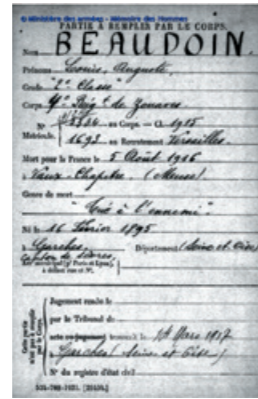 © Ministère des armées - Mémoire des Hommes
PARTIE À REMPLIR PAR LE CORPS.
Nom BEAUDOIN
Prénoms Louis, Auguste,
Grade 2e Classe
Corps 4e Rég t de Zouaves
N° 
Matricule. au Corps. — Cl. 1915
1693 au Recrutement Versailles
Mort pour la France le 5 Août 1916
à Vaux-Chapitre (Meuse)
Genre de mort
"Tué à l'ennemi".
Né le 16 Février 1895
à Garches Département (Seine et Oise)
Canton de Sèvres
Arr municipal (pr Paris et Lyon),
à défaut rue et N°.
Cette partie
n'est pas à remplir
par le Corps.
Jugement rendu le
par le Tribunal de
acte ou jugement transcrit le 14 Mars 1917
à Garches (Seine et Oise)
N° du registre d'état civil